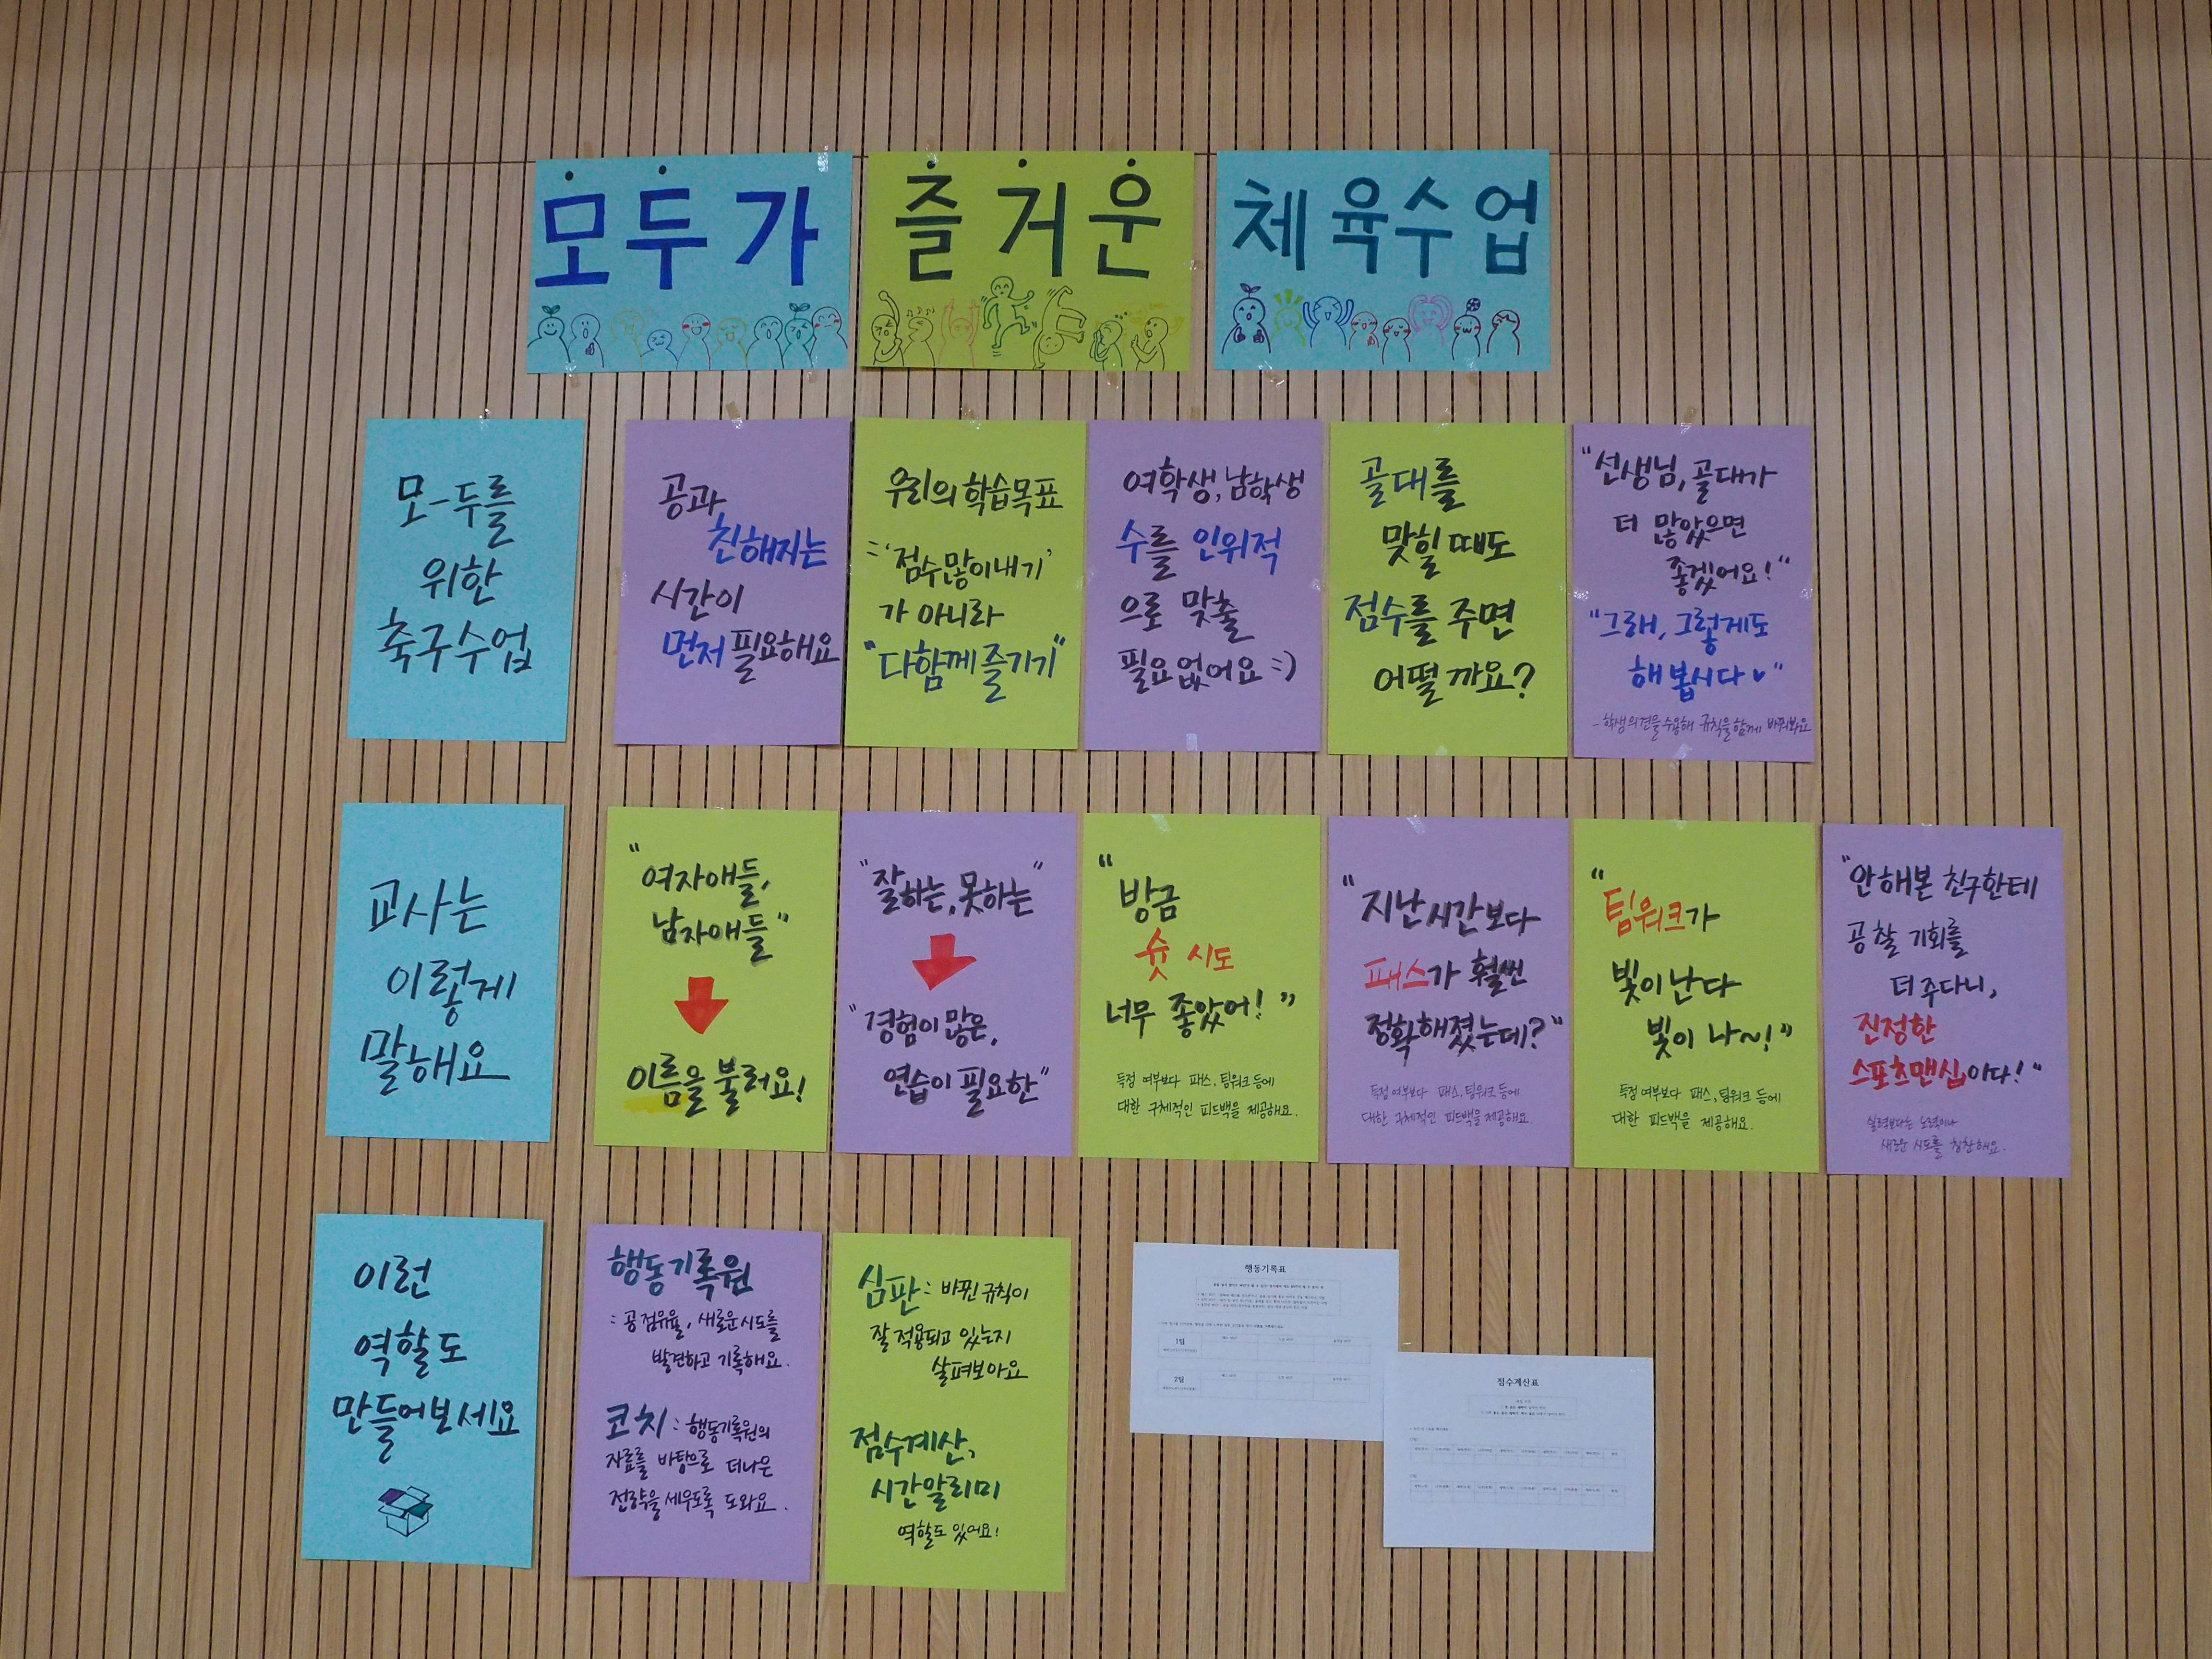 모두가
즐거운
체육수업
모-두를
위한
축구수업
공과
친해지는
시간이
먼저 필요해요
우리의 학습목표
= '점수많이내기'
가 아니라
"다함께 즐기기"
여학생, 남학생
수를 인위적
으로 맞출
필요없어요 :)
골대를
맞힐 때도
점수를 주면
어떨까요?
"선생님, 골대가
더 많았으면
좋겠어요!"
"그래, 그렇게도
해봅시다♥"
- 학생의견을 수용해 규칙을 함께 바꿔봐요
교사는
이렇게
말해요
"여자애들,
남자애들"
이름을 불러요!
"잘하는, 못하는"
"경험이 많은,
연습이 필요한"
"방금
슛 시도
너무 좋았어!"
득점 여부보다 패스, 팀워크 등에
대한 구체적인 피드백을 제공해요.
"지난 시간보다
패스가 훨씬
정확해졌는데?"
득점 여부보다 패스, 팀워크 등에
대한 구체적인 피드백을 제공해요.
"팀워크가
빛이 난다
빛이 나~!"
득점 여부보다 패스, 팀워크 등에
대한 피드백을 제공해요.
"안해본 친구한테
공 찰 기회를
더 주다니,
진정한
스포츠맨십이다!"
실력보다는 노력이나
새로운 시도를 칭찬해요.
이런
역할도
만들어보세요
행동기록원
: 공 점유율, 새로운 시도를
발견하고 기록해요.
코치 : 행동기록원의
자료를 바탕으로 더나은
전략을 세우도록 도와요.
심판 : 바뀐 규칙이
잘 적용되고 있는지
살펴보아요
점수계산,
시간알리미
역할도 있어요!
행동기록표
1팀
2팀
점수계산표